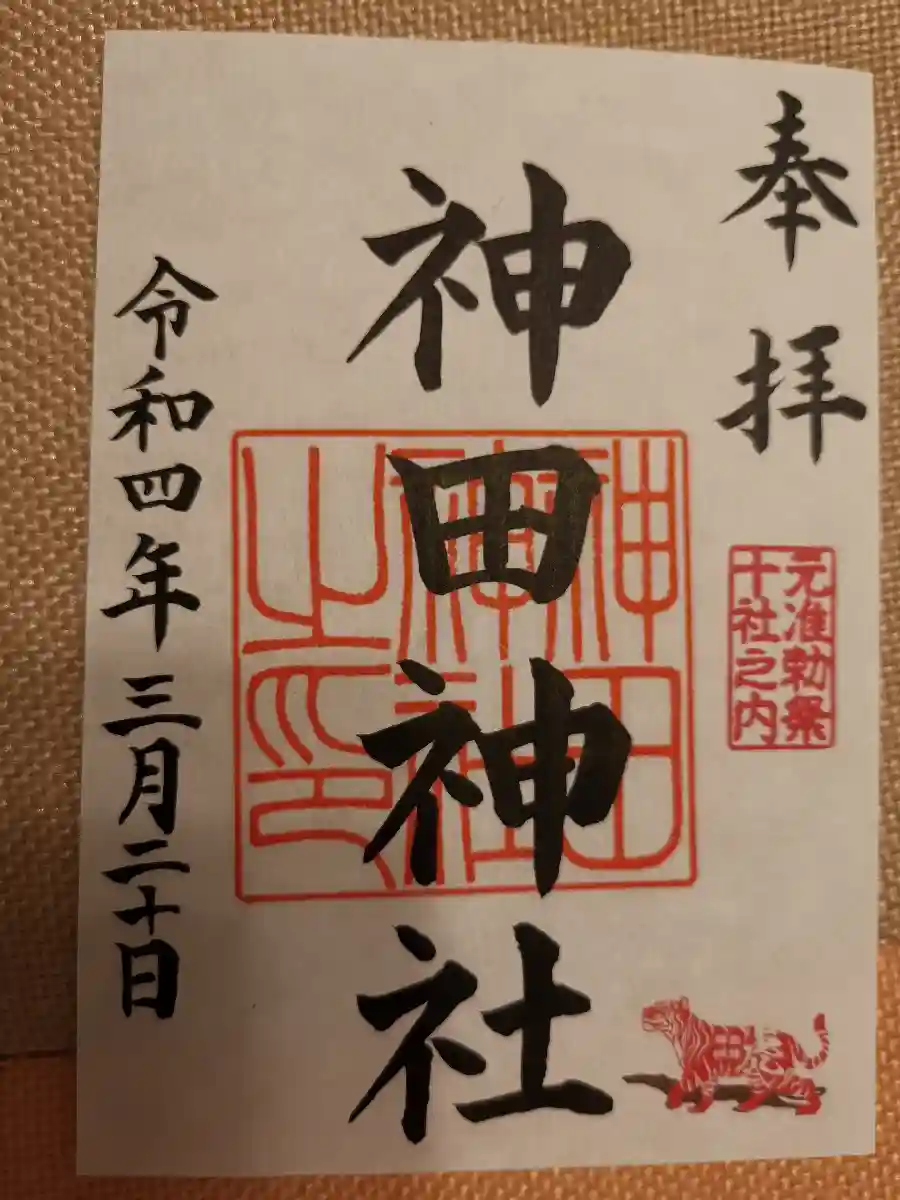 奉拝
元准勅祭
十社之内
神田神社
神田
神社
之印
令和四年三月二十日